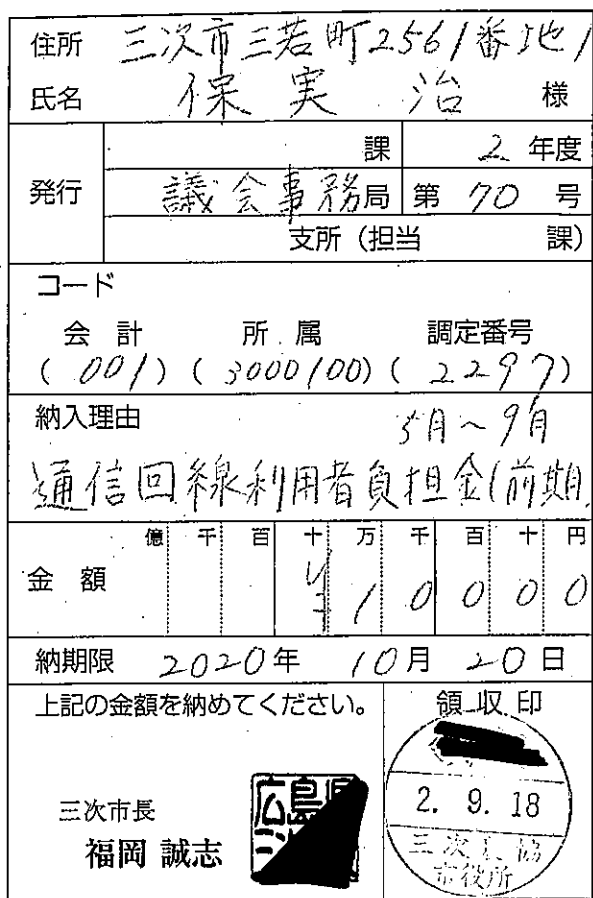 住所 三次市三若町2561番地1
氏名 保実 治 様
課 2 年度
発行 議会事務局 第 70 号
支所（担当 課）
コード
会計 所属 調定番号
( 001 ) ( 3000100 ) ( 2297 )
納入理由 5月～9月
通信回線利用者負担金(前期
億 千 百 十 万 千 百 十 円
金額 ¥ 1 0 0 0 0
納期限 2020年 10月 20日
上記の金額を納めてください。 領収印
2. 9. 18
三次市長
福岡 誠志
広島県
三次農協
市役所